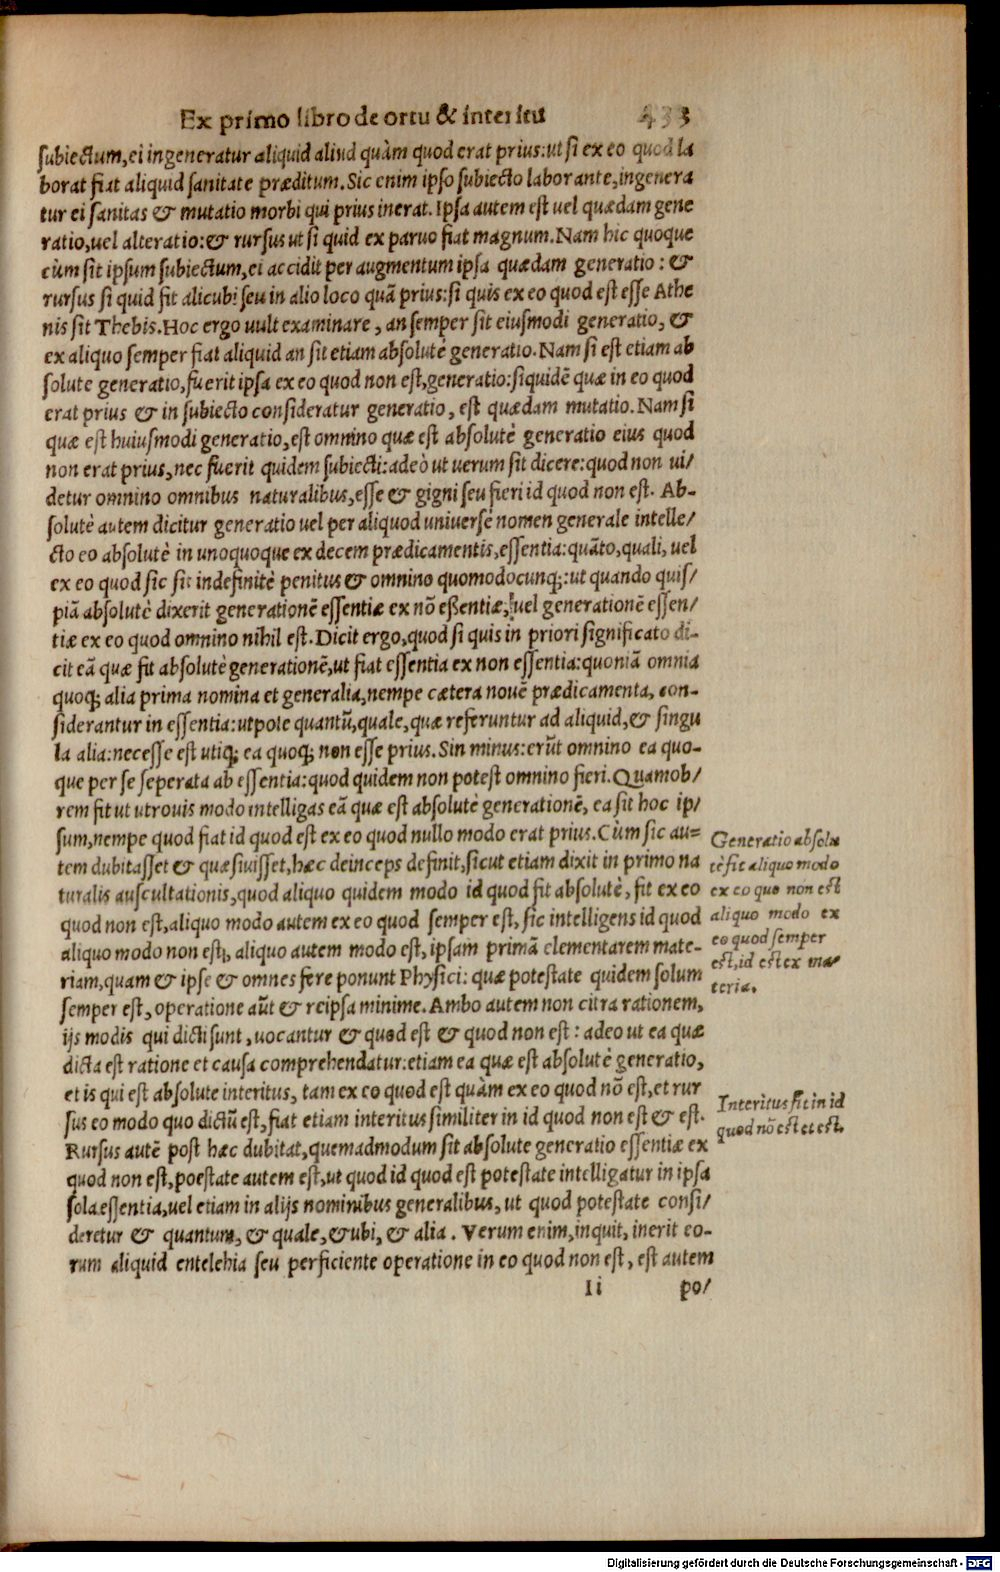 Ex primo libro de ortu & interitu 433
subiectum,ei ingeneratur aliquid aliud quàm quod erat prius:ut si ex eo quod la
borat fiat aliquid sanitate præditum.Sic enim ipso subiecto laborante,ingenera
tur ei sanitas & mutatio morbi qui prius inerat.Ipsa autem est uel quædam gene
ratio,uel alteratio:& rursus ut si quid ex paruo fiat magnum.Nam hic quoque
cùm sit ipsum subiectum,ei accidit per augmentum ipsa quædam generatio: &
rursus si quid fit alicubi seu in alio loco quā prius:si quis ex eo quod est esse Athe
nis sit Thebis.Hoc ergo uult examinare, an semper sit eiusmodi generatio, &
ex aliquo semper fiat aliquid an sit etiam absolutè generatio.Nam si est etiam ab
solute generatio,fuerit ipsa ex eo quod non est,generatio:siquidē quæ in eo quod
erat prius & in subiecto consideratur generatio, est quædam mutatio.Nam si
quæ est huiusmodi generatio,est omnino quæ est absolutè generatio eius quod
non erat prius,nec fuerit quidem subiecti:adeò ut uerum sit dicere:quod non ui/
detur omnino omnibus naturalibus,esse & gigni seu fieri id quod non est. Ab-
solutè autem dicitur generatio uel per aliquod uniuersè nomen generale intelle/
cto eo absolutè in unoquoque ex decem prædicamentis,essentia:quāto,quali, uel
ex eo quod sic sit indefinitè penitus & omnino quomodocunq;:ut quando quis/
piā absolutè dixerit generationē essentiæ ex nō eßentiæ, uel generationē essen/
tiæ ex eo quod omnino nihil est.Dicit ergo,quod si quis in priori significato di-
cit eā quæ fit absolutè generationē,ut fiat essentia ex non essentia:quoniā omnia
quoq; alia prima nomina et generalia,nempe cætera nouē prædicamenta, con-
siderantur in essentia:utpote quantū,quale,quæ referuntur ad aliquid,& singu
la alia:necesse est utiq; ea quoq; non esse prius.Sin minus:erūt omnino ea quo-
que per se seperata ab essentia:quod quidem non potest omnino fieri.Quamob/
rem fit ut utrouis modo intelligas eā quæ est absolutè generationē, ea sit hoc ip/
sum,nempe quod fiat id quod est ex eo quod nullo modo erat prius.Cùm sic au=
tem dubitasset & quæsiuisset,hæc deinceps definit,sicut etiam dixit in primo na
turalis auscultationis,quod aliquo quidem modo id quod fit absolutè, fit ex eo
quod non est,aliquo modo autem ex eo quod semper est, sic intelligens id quod
aliquo modo non est, aliquo autem modo est, ipsam primā elementarem mate-
riam,quam & ipse & omnes fere ponunt Physici: quæ potestate quidem solum
semper est, operatione aūt & reipsa minime. Ambo autem non citra rationem,
ijs modis qui dicti sunt, uocantur & quod est & quod non est: adeo ut ea quæ
dicta est ratione et causa comprehendatur:etiam ea quæ est absolutè generatio,
et is qui est absolute interitus, tam ex eo quod est quàm ex eo quod nō est,et rur
sus eo modo quo dictū est, fiat etiam interitus similiter in id quod non est & est.
Rursus autē post hæc dubitat,quemadmodum sit absolute generatio essentiæ ex
quod non est,poestate autem est,ut quod id quod est potestate intelligatur in ipsa
sola essentia,uel etiam in alijs nominibus generalibus, ut quod potestate consi/
deretur & quantum, & quale, & ubi, & alia. Verum enim,inquit, inerit eo-
rum aliquid entelehia seu perficiente operatione in eo quod non est, est autem
Ii po/
Generatio absolu
tè fit aliquo modo
ex eo quo non est
aliquo modo ex
eo quod semper
est,id est ex ma-
teria.
Interitus fit in id
quod nō est et est.
Digitalisierung gefördert durch die Deutsche Forschungsgemeinschaft - DFG